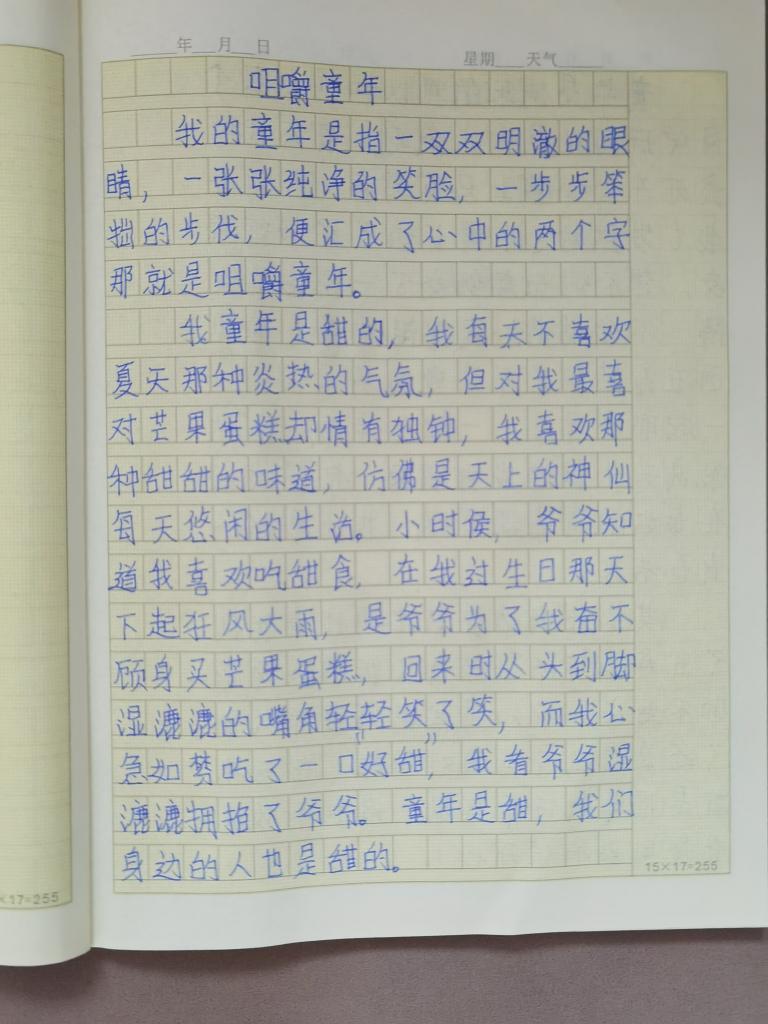 年 月 日
星期 天气
咀嚼童年
我的童年是指一双双明澈的眼
睛，一张张纯净的笑脸，一步步笨
拙的步伐，便汇成了心中的两个字
那就是咀嚼童年。
我童年是甜的，我每天不喜欢
夏天那种炎热的气氛，但对我最喜
对芒果蛋糕却情有独钟，我喜欢那
种甜甜的味道，仿佛是天上的神仙
每天悠闲的生活。小时侯，爷爷知
道我喜欢吃甜食，在我过生日那天
下起狂风大雨，是爷爷为了我奋不
顾身买芒果蛋糕，回来时从头到脚
湿漉漉的嘴角轻轻笑了笑，而我心
急如焚吃了一口“好甜”，我看爷爷湿
漉漉拥抱了爷爷。童年是甜，我们
身边的人也是甜的。
15×17=255
×17=255